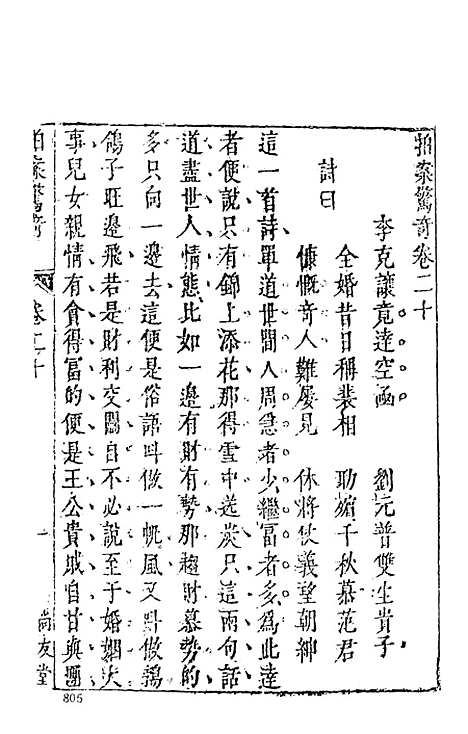 拍案驚奇卷二十
李克讓竟達空函　劉元普雙生貴子
全婚昔日稱裴相　助殯千秋慕范君
慷慨奇人難屢見　休將仗義望朝紳
詩曰
這一首詩單道世間人周急者少繼富者多爲此達
者便說只有錦上添花那得雪中送炭只這兩句話
道盡世人情態比如一邊有財有勢那趨財慕勢的
多只向一邊去這便是俗語呌做一帆風又呌做鵓
鴿子旺邊飛若是財利交關自不必說至于婚姻大
事兒女親情有貪得富的便是王公貴戚自甘與團
拍案驚奇
卷二十
一
尚友堂
805